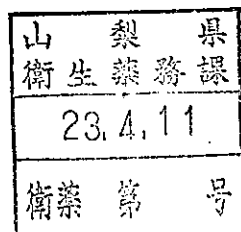 山梨県
衛生薬務課
23.4.11
衛薬第号